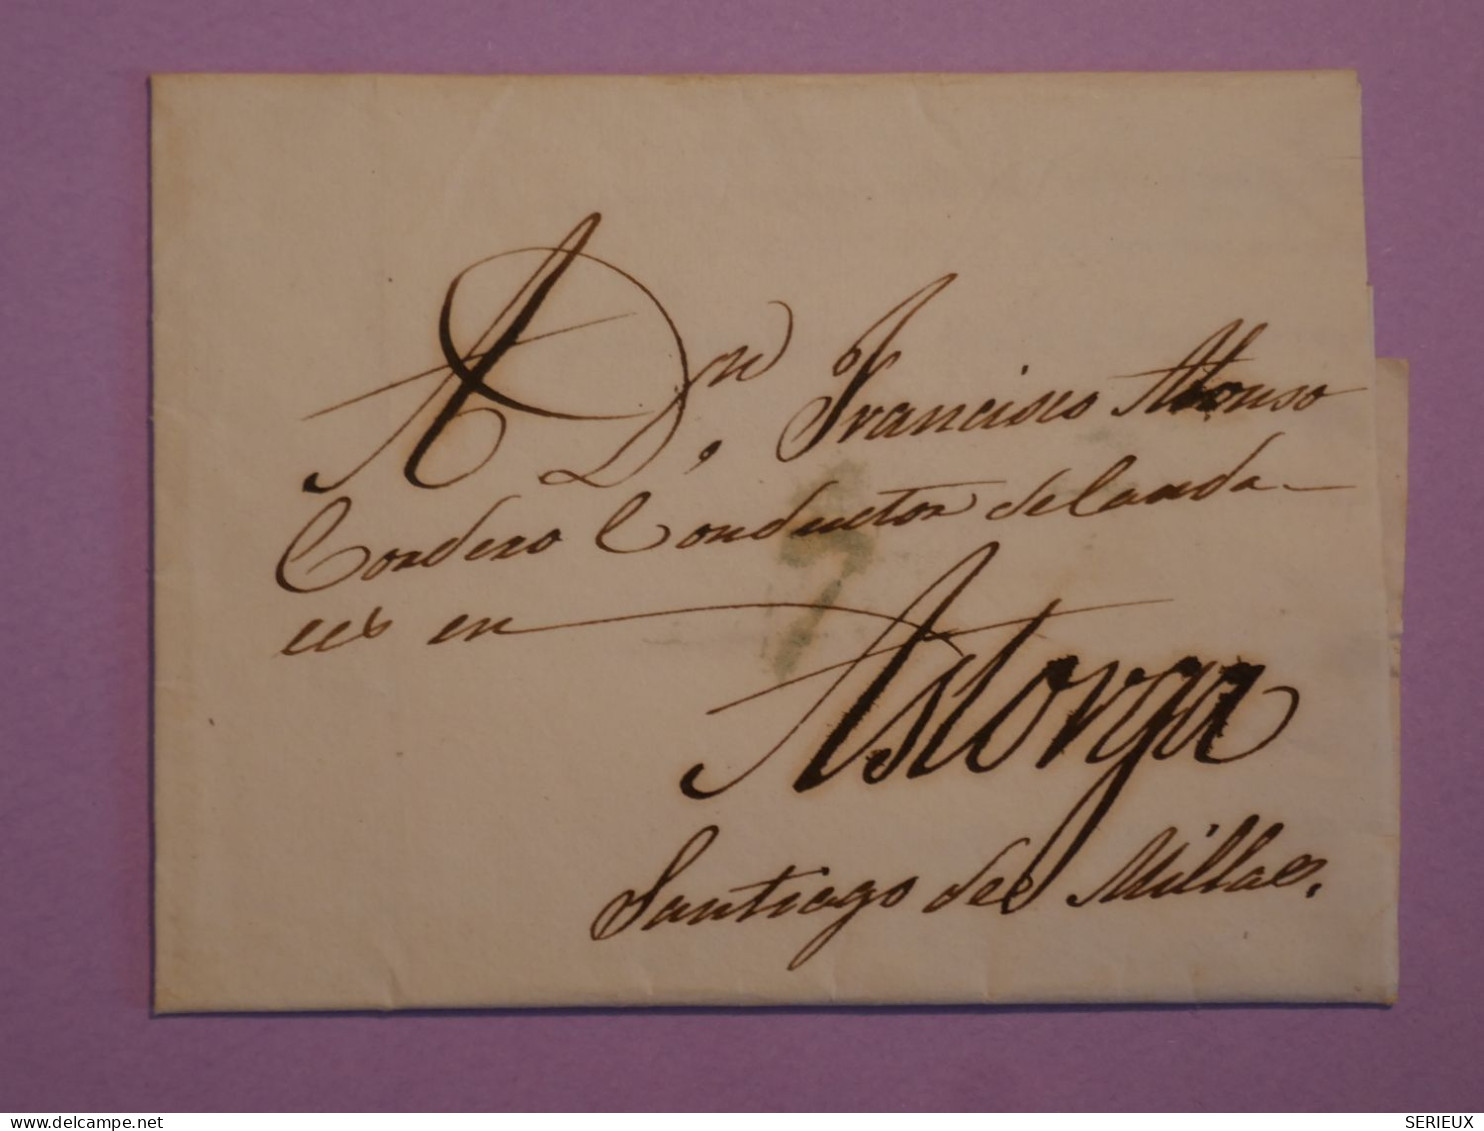 A Dn. Francisco Alonso
Cordero Conductor de Cauda-
les en
Astorga
Santiago de Millas.
delcampe.net
SERIEUX